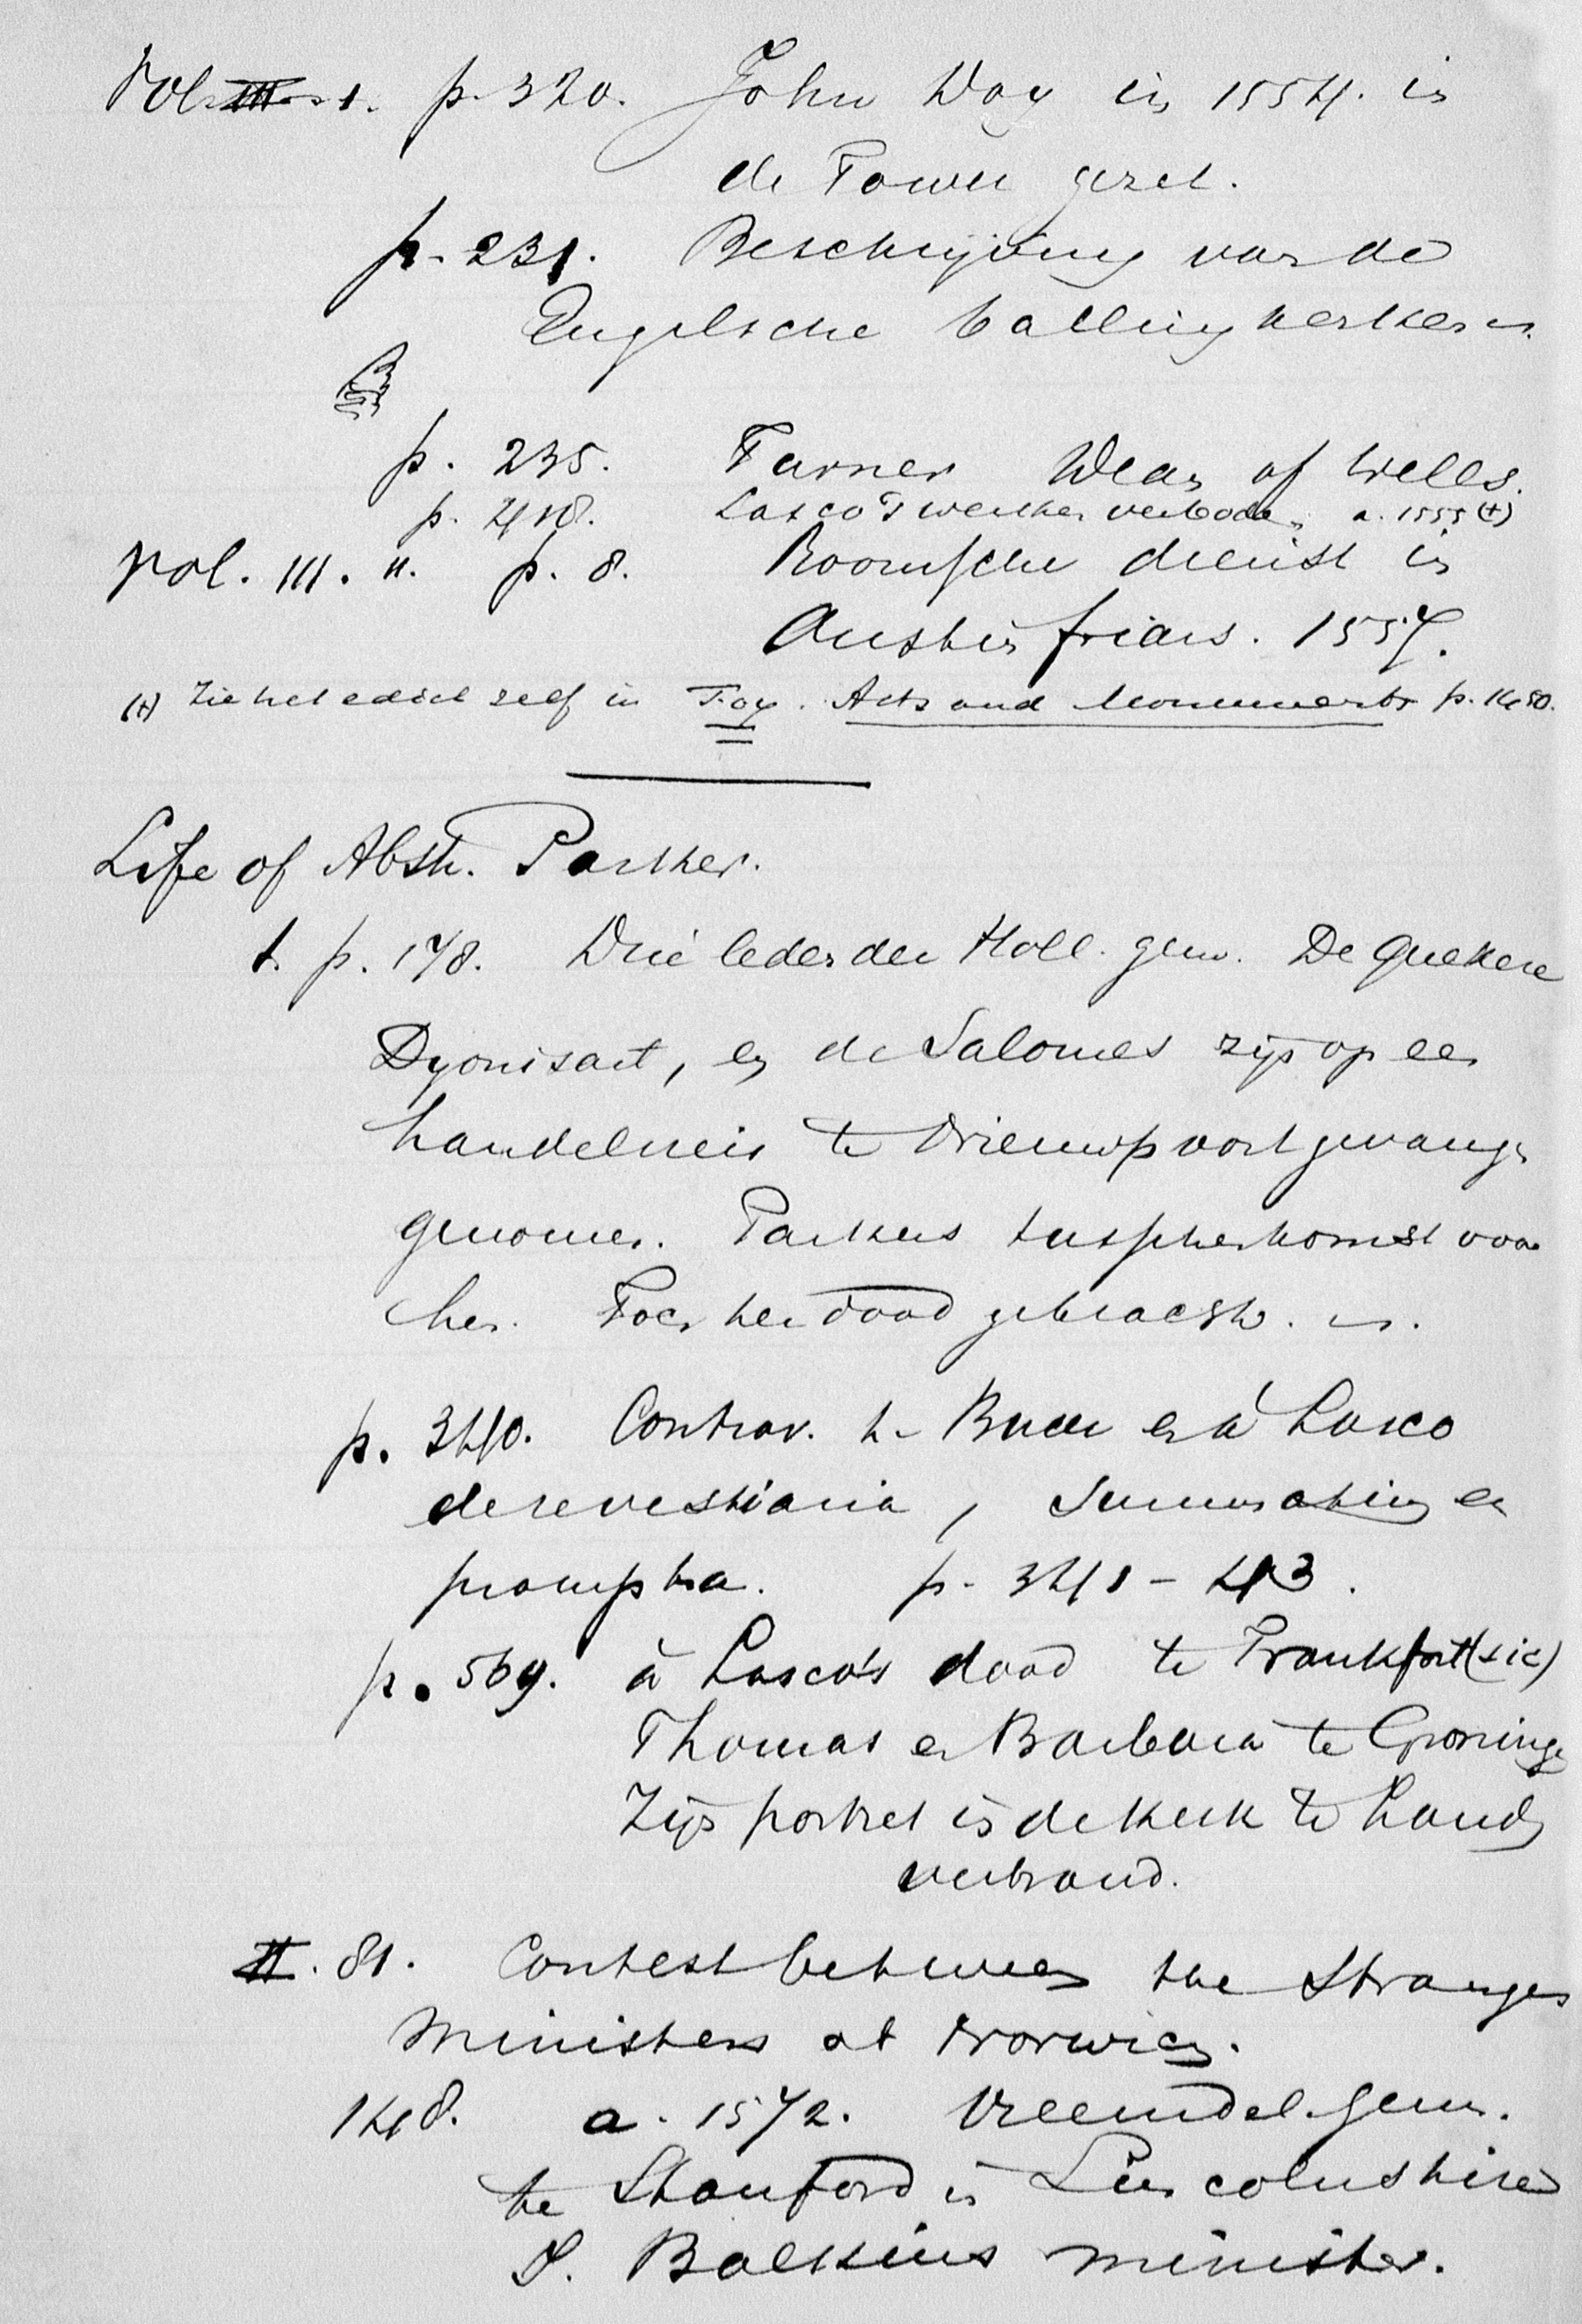 Vol. III. 1. p. 320. John Day in 1554. in
de Tower gezet.
p. 231. Beschrijving van de
Engelsche ballingkerken.
p. 235. Turner Dean of Wells.
p. 418. Lasco's werken verboden a. 1555 (+)
Vol. III. II. p. 8. Roomsche dienst in
Austin friars. 1557.
(+) Zie het edict zelf in Fox. Acts and Monuments p. 1450.
Life of Absh. Parker.
I. p. 178. Drie leden der Holl. gem. De Quekere
Dyonisart, en de Salomes zijn op een
handelsreis te Nieuwpoort gevangen
genomen. Parkers tusschenkomst voor
hen. Toen ter dood gebracht.
p. 340. Controv. t. Bucer en à Lasco
de re vestiaria, Summatim en
prompta. p. 341 - 43.
p. 569. à Lasco's dood te Frankfort (sic)
Thomas en Barbara te Groningen
Zijn portret in de kerk te Londen
verbrand.
II. 81. Contest between the Strangers
Ministers at Norwich.
148. a. 1572. Vreemdel. gem.
te Stanford in Lincolnshire
I. Balkius minister.